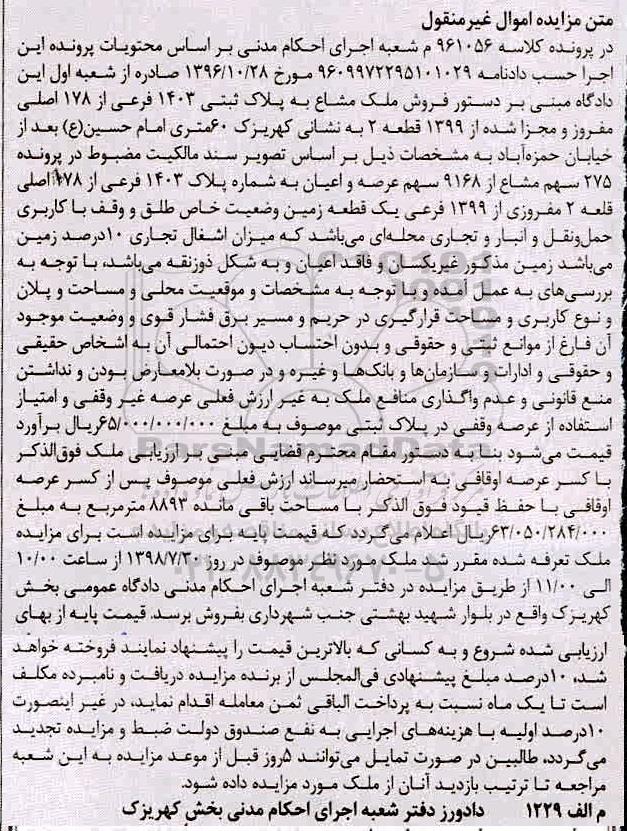 متن مزایده اموال غیرمنقول
در پرونده کلاسه ۹۶۱۰۵۶ م شعبه اجرای احکام مدنی بر اساس محتویات پرونده این
اجرا حسب دادنامه ۹۶۰۹۹۷۲۲۹۵۱۰۱۰۲۹ مورخ ۱۳۹۶/۱۰/۲۸ صادره از شعبه اول این
دادگاه مبنی بر دستور فروش ملک مشاع به پلاک ثبتی ۱۴۰۳ فرعی از ۱۷۸ اصلی
مفروز و مجزا شده از ۱۳۹۹ قطعه ۲ به نشانی کهریزک ۶۰متری امام حسین(ع) بعد از
خیابان حمزه‌آباد به مشخصات ذیل بر اساس تصویر سند مالکیت مضبوط در پرونده
۲۷۵ سهم مشاع از ۹۱۶۸ سهم عرصه و اعیان به شماره پلاک ۱۴۰۳ فرعی از ۱۷۸اصلی
قلعه ۲ مفروزی از ۱۳۹۹ فرعی یک قطعه زمین وضعیت خاص طلق و وقف با کاربری
حمل‌ونقل و انبار و تجاری محله‌ای می‌باشد که میزان اشغال تجاری ۱۰درصد زمین
می‌باشد زمین مذکور غیریکسان و فاقد اعیان و به شکل ذوزنقه می‌باشد، با توجه به
بررسی‌های به عمل آمده و با توجه به مشخصات و موقعیت محلی و مساحت و پلان
و نوع کاربری و مساحت قرارگیری در حریم و مسیر برق فشار قوی و وضعیت موجود
آن فارغ از موانع ثبتی و حقوقی و بدون احتساب دیون احتمالی آن به اشخاص حقیقی
و حقوقی و ادارات و سازمان‌ها و بانک‌ها و غیره و در صورت بلامعارض بودن و نداشتن
منع قانونی و عدم واگذاری منافع ملک به غیر ارزش فعلی عرصه غیر وقفی و امتیاز
استفاده از عرصه وقفی در پلاک ثبتی موصوف به مبلغ ۶۵/۰۰۰/۰۰۰/۰۰۰ریال برآورد
قیمت می‌شود بنا به دستور مقام محترم قضایی مبنی بر ارزیابی ملک فوق‌الذکر
با کسر عرصه اوقافی به استحضار میرساند ارزش فعلی موصوف پس از کسر عرصه
اوقافی با حفظ قیود فوق الذکر با مساحت باقی مانده ۸۸۹۳ مترمربع به مبلغ
۶۳/۰۵۰/۲۸۴/۰۰۰ریال اعلام می‌گردد که قیمت پایه برای مزایده است برای مزایده
ملک تعرفه شده مقرر شد ملک مورد نظر موصوف در روز ۱۳۹۸/۷/۳۰ از ساعت ۱۰/۰۰
الی ۱۱/۰۰ از طریق مزایده در دفتر شعبه اجرای احکام مدنی دادگاه عمومی بخش
کهریزک واقع در بلوار شهید بهشتی جنب شهرداری بفروش برسد. قیمت پایه از بهای
ارزیابی شده شروع و به کسانی که بالاترین قیمت را پیشنهاد نمایند فروخته خواهد
شد، ۱۰درصد مبلغ پیشنهادی فی‌المجلس از برنده مزایده دریافت و نامبرده مکلف
است تا یک ماه نسبت به پرداخت الباقی ثمن معامله اقدام نماید، در غیر اینصورت
۱۰درصد اولیه با هزینه‌های اجرایی به نفع صندوق دولت ضبط و مزایده تجدید
می‌گردد، طالبین در صورت تمایل می‌توانند ۵روز قبل از موعد مزایده به این شعبه
مراجعه تا ترتیب بازدید آنان از ملک مورد مزایده داده شود.
م الف ۱۲۲۹ دادورز دفتر شعبه اجرای احکام مدنی بخش کهریزک